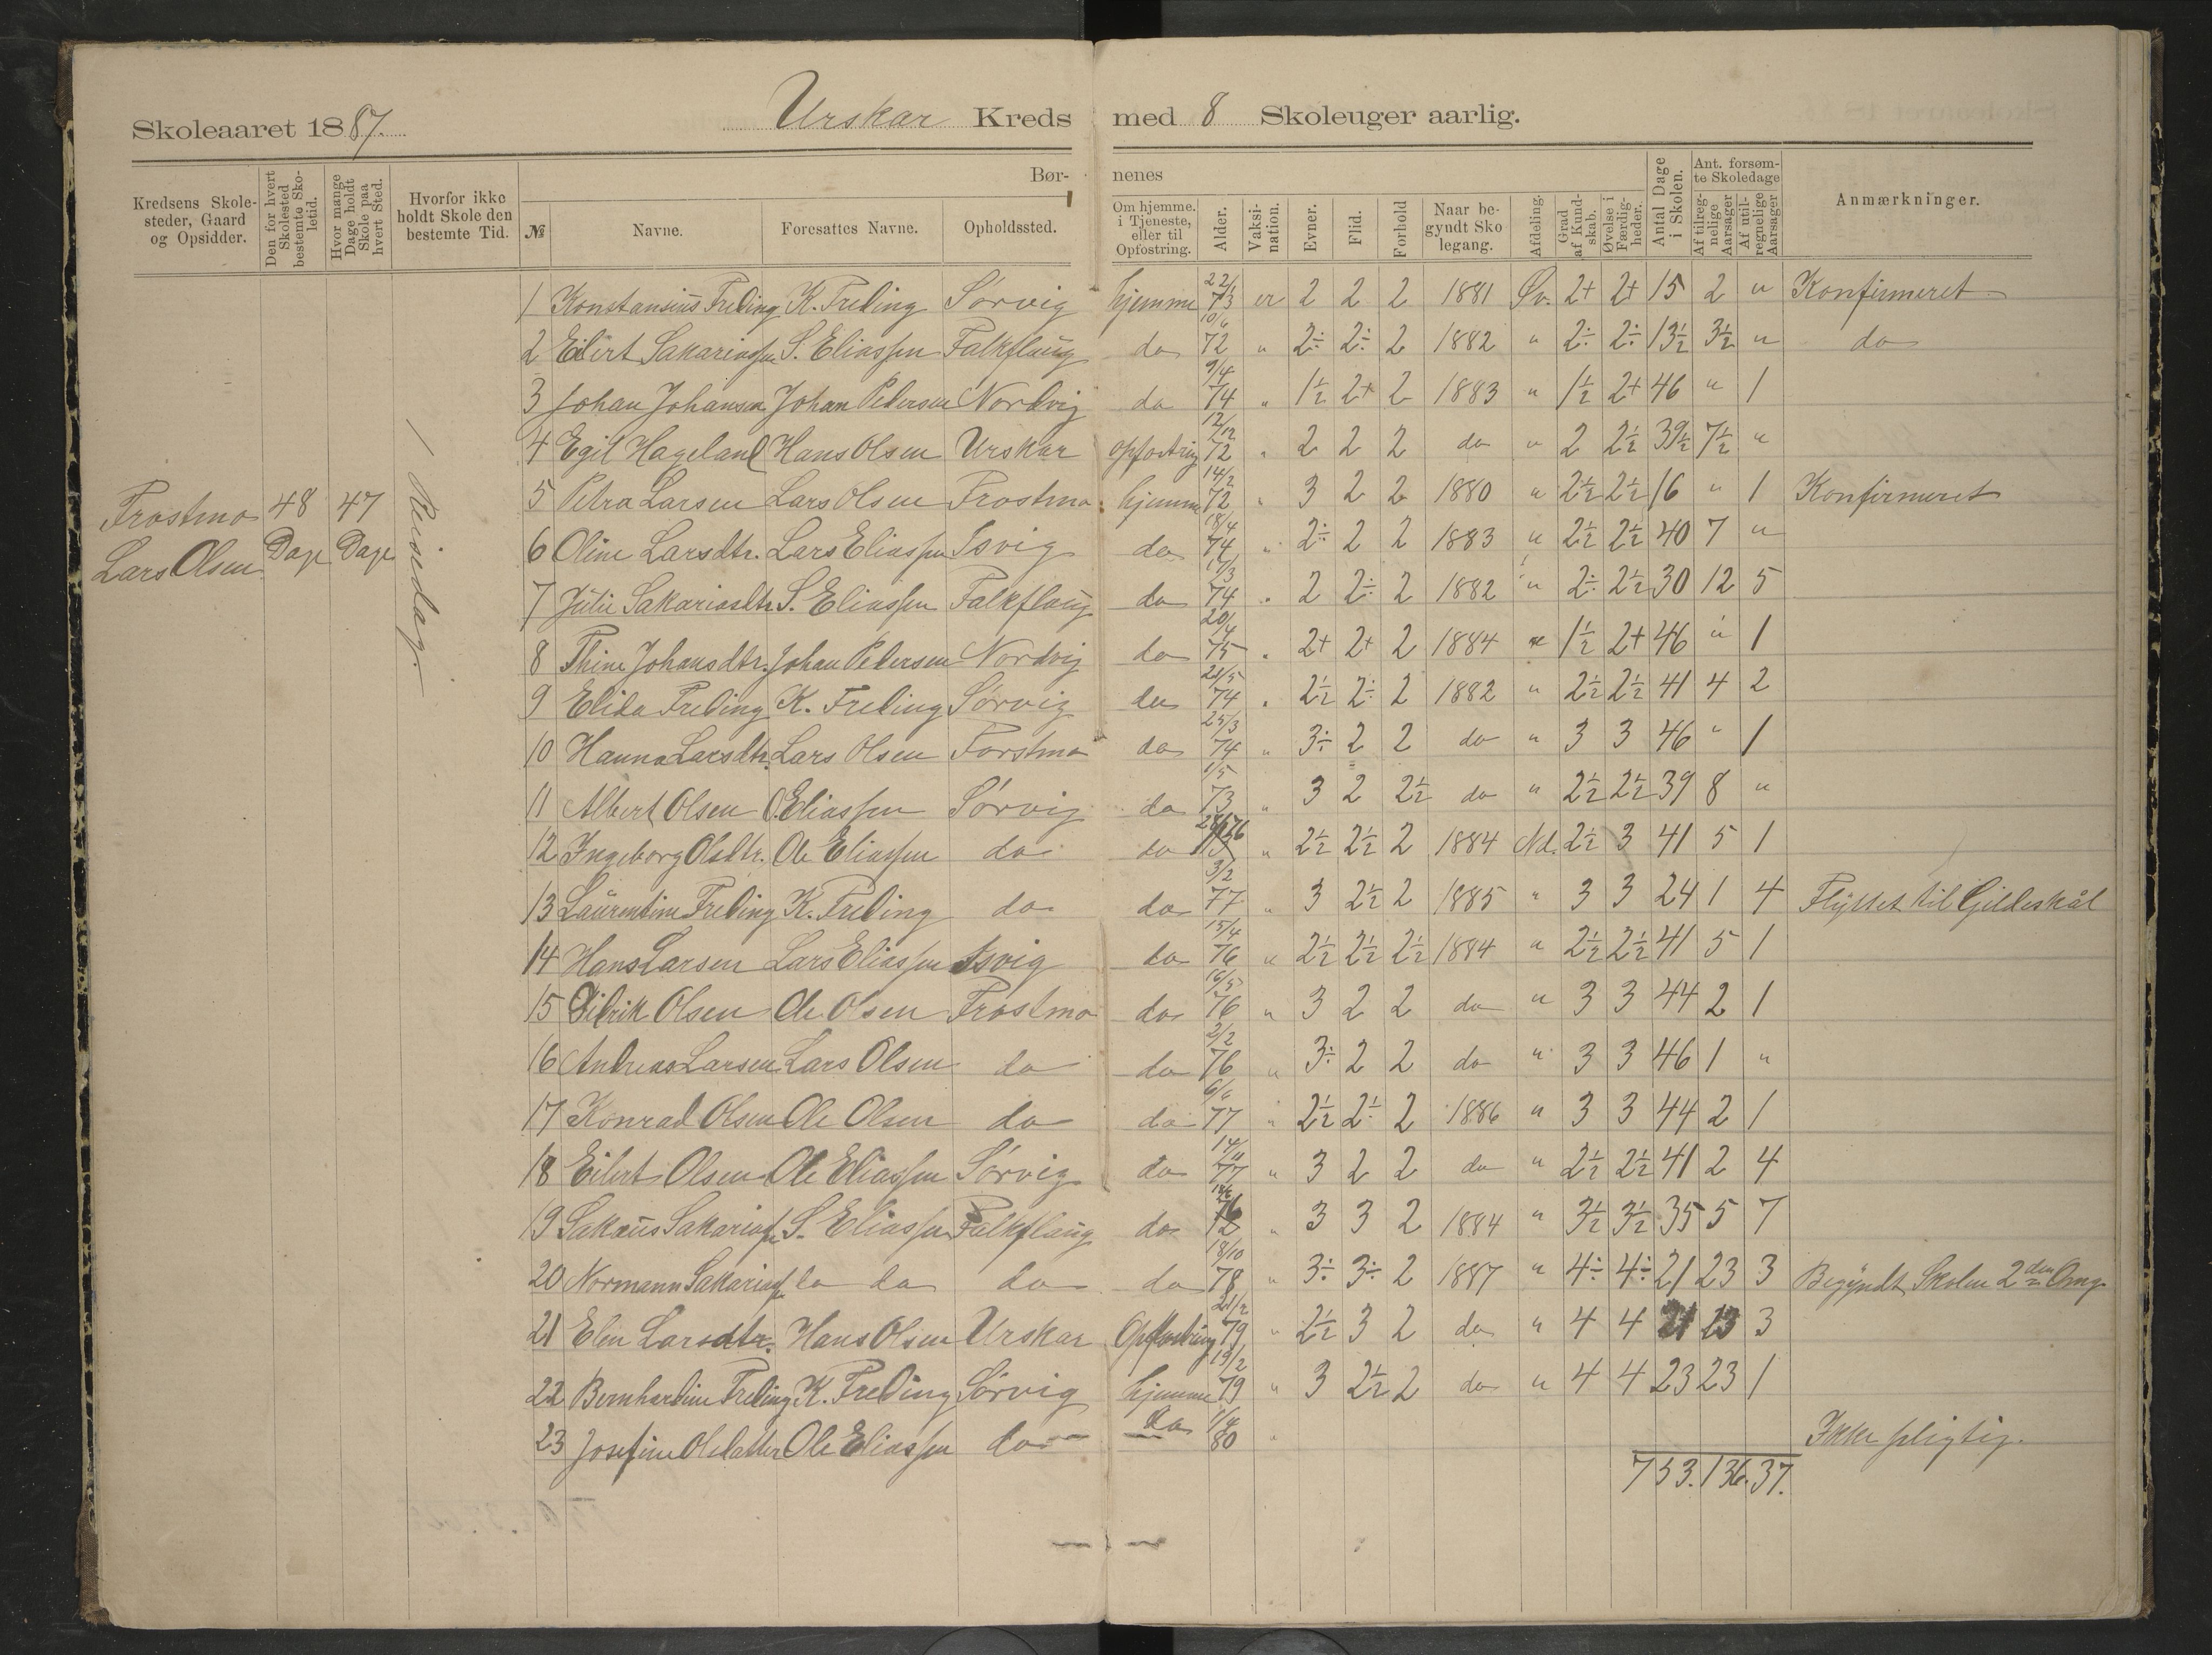 Skoleaaret 1887. Urskar Kreds med 8 Skoleuger aarlig.
Kredsens Skolesteder, Gaard og Opsidder. Den for hvert Skolested bestemte Skoletid. Hvor mange Dage holdt Skole paa hvert Sted. Hvorfor ikke holdt Skole den bestemte Tid. Børnenes
№ Navne. Foresattes Navne. Opholdssted. Om hjemme, i Tjeneste, eller til Opfostring. Alder. Vaksination. Evner. Flid. Forhold Naar begyndt Skolegang. Afdeling. Grad af Kundskab. Øvelse i Færdigheder. Antal Dage i Skolen. Ant. forsømte Skoledage Af tilregnelige Aarsager Af utilregnelige Aarsager Anmærkninger.
Frostmo 48 Dage 47 Dage 1 Reisedag.
Lars Olsen
1 Konstansius Freding K. Freding Sørvig hjemme 22/1 73 er 2 2 2 1881 Øv. 2+ 2+ 15 2 " Konfirmeret
2 Eilert Sakariassen S. Eliassen Falkflaug do 10/6 72 " 2÷ 2÷ 2 1882 " 2÷ 2÷ 13½ 3½ " do
3 Johan Johansen Johan Pedersen Nordvig do 9/4 74 " 1½ 2+ 2 1883 " 1½ 2+ 46 " 1
4 Egil Hageland Hans Olsen Urskar opfostring 12/12 72 " 2 2 2 do " 2 2½ 39½ 7½ "
5 Petra Larsen Lars Olsen Frostmo hjemme 14/2 72 " 3 2 2 1880 " 2½ 2½ 16 " 1 Konfirmeret
6 Oline Larsdtr. Lars Eliassen Isvig do 18/4 74 " 2÷ 2 2 1883 " 2½ 2½ 40 7 "
7 Julie Sakariasdtr S. Eliassen Falkflaug do 17/3 74 " 2 2÷ 2 1882 " 2÷ 2½ 30 12 5
8 Thine Johansdtr. Johan Pedersen Nordvig do 20/4 75 " 2+ 2+ 2 1884 " 1½ 2+ 46 " 1
9 Elida Freding K. Freding Sørvig do 21/5 74 " 2½ 2÷ 2 1882 " 2½ 2½ 41 4 2
10 Hanna Larsdtr. Lars Olsen Forstmo do 25/3 74 " 3÷ 2 2 do " 3 3 46 " 1
11 Albert Olsen O. Eliassen Sørvig do 1/5 73 " 3 2 2½ do " 2½ 2½ 39 8 "
12 Ingeborg Olsdtr. Ole Eliassen do do 76 " 2½ 2½ 2 1884 Nd. 2½ 3 41 5 1
13 Laurentine Freding K. Freding do do 3/2 77 " 3 2½ 2 1885 " 3 3 24 1 4 Flyttet til Gildeskål
14 Hans Larsen Lars Eliassen Isvig do 15/4 76 " 2½ 2½ 2½ 1884 " 2½ 2½ 41 5 1
15 Didrik Olsen Ole Olsen Frostmo do 16/5 76 " 3 2 2 do " 3 3 44 2 1
16 Andreas Larsen Lars Olsen do do 2/2 76 " 3÷ 2 2 do " 3 3 46 1 "
17 Konrad Olsen Ole Olsen do do 6/6 77 " 2½ 2÷ 2 1886 " 3 3 44 2 1
18 Eilert Olsen Ole Eliassen Sørvig do 14/11 77 " 3 2 2 do " 2½ 2½ 41 2 4
19 Sakæus Sakariass. S. Eliassen Falkflaug do 76 " 3 3 2 1884 " 3½ 3½ 35 5 7
20 Normann Sakariass. do do do do 18/10 78 " 3÷ 3÷ 2 1887 " 4÷ 4÷ 21 23 3 Begyndt Skolen 2den Omg.
21 Elen Larsdtr. Hans Olsen Urskar Opfostring 21/2 79 " 2½ 3 2 do " 4 4 21 23 3
22 Bernhardine Freding K. Freding Sørvig hjemme 19/2 79 " 3 2½ 2 do " 4 4 23 23 1
23 Josefine Olsdatter Ole Eliassen do do 1/4 80 " Ikke pligtig.
753. 136. 37.